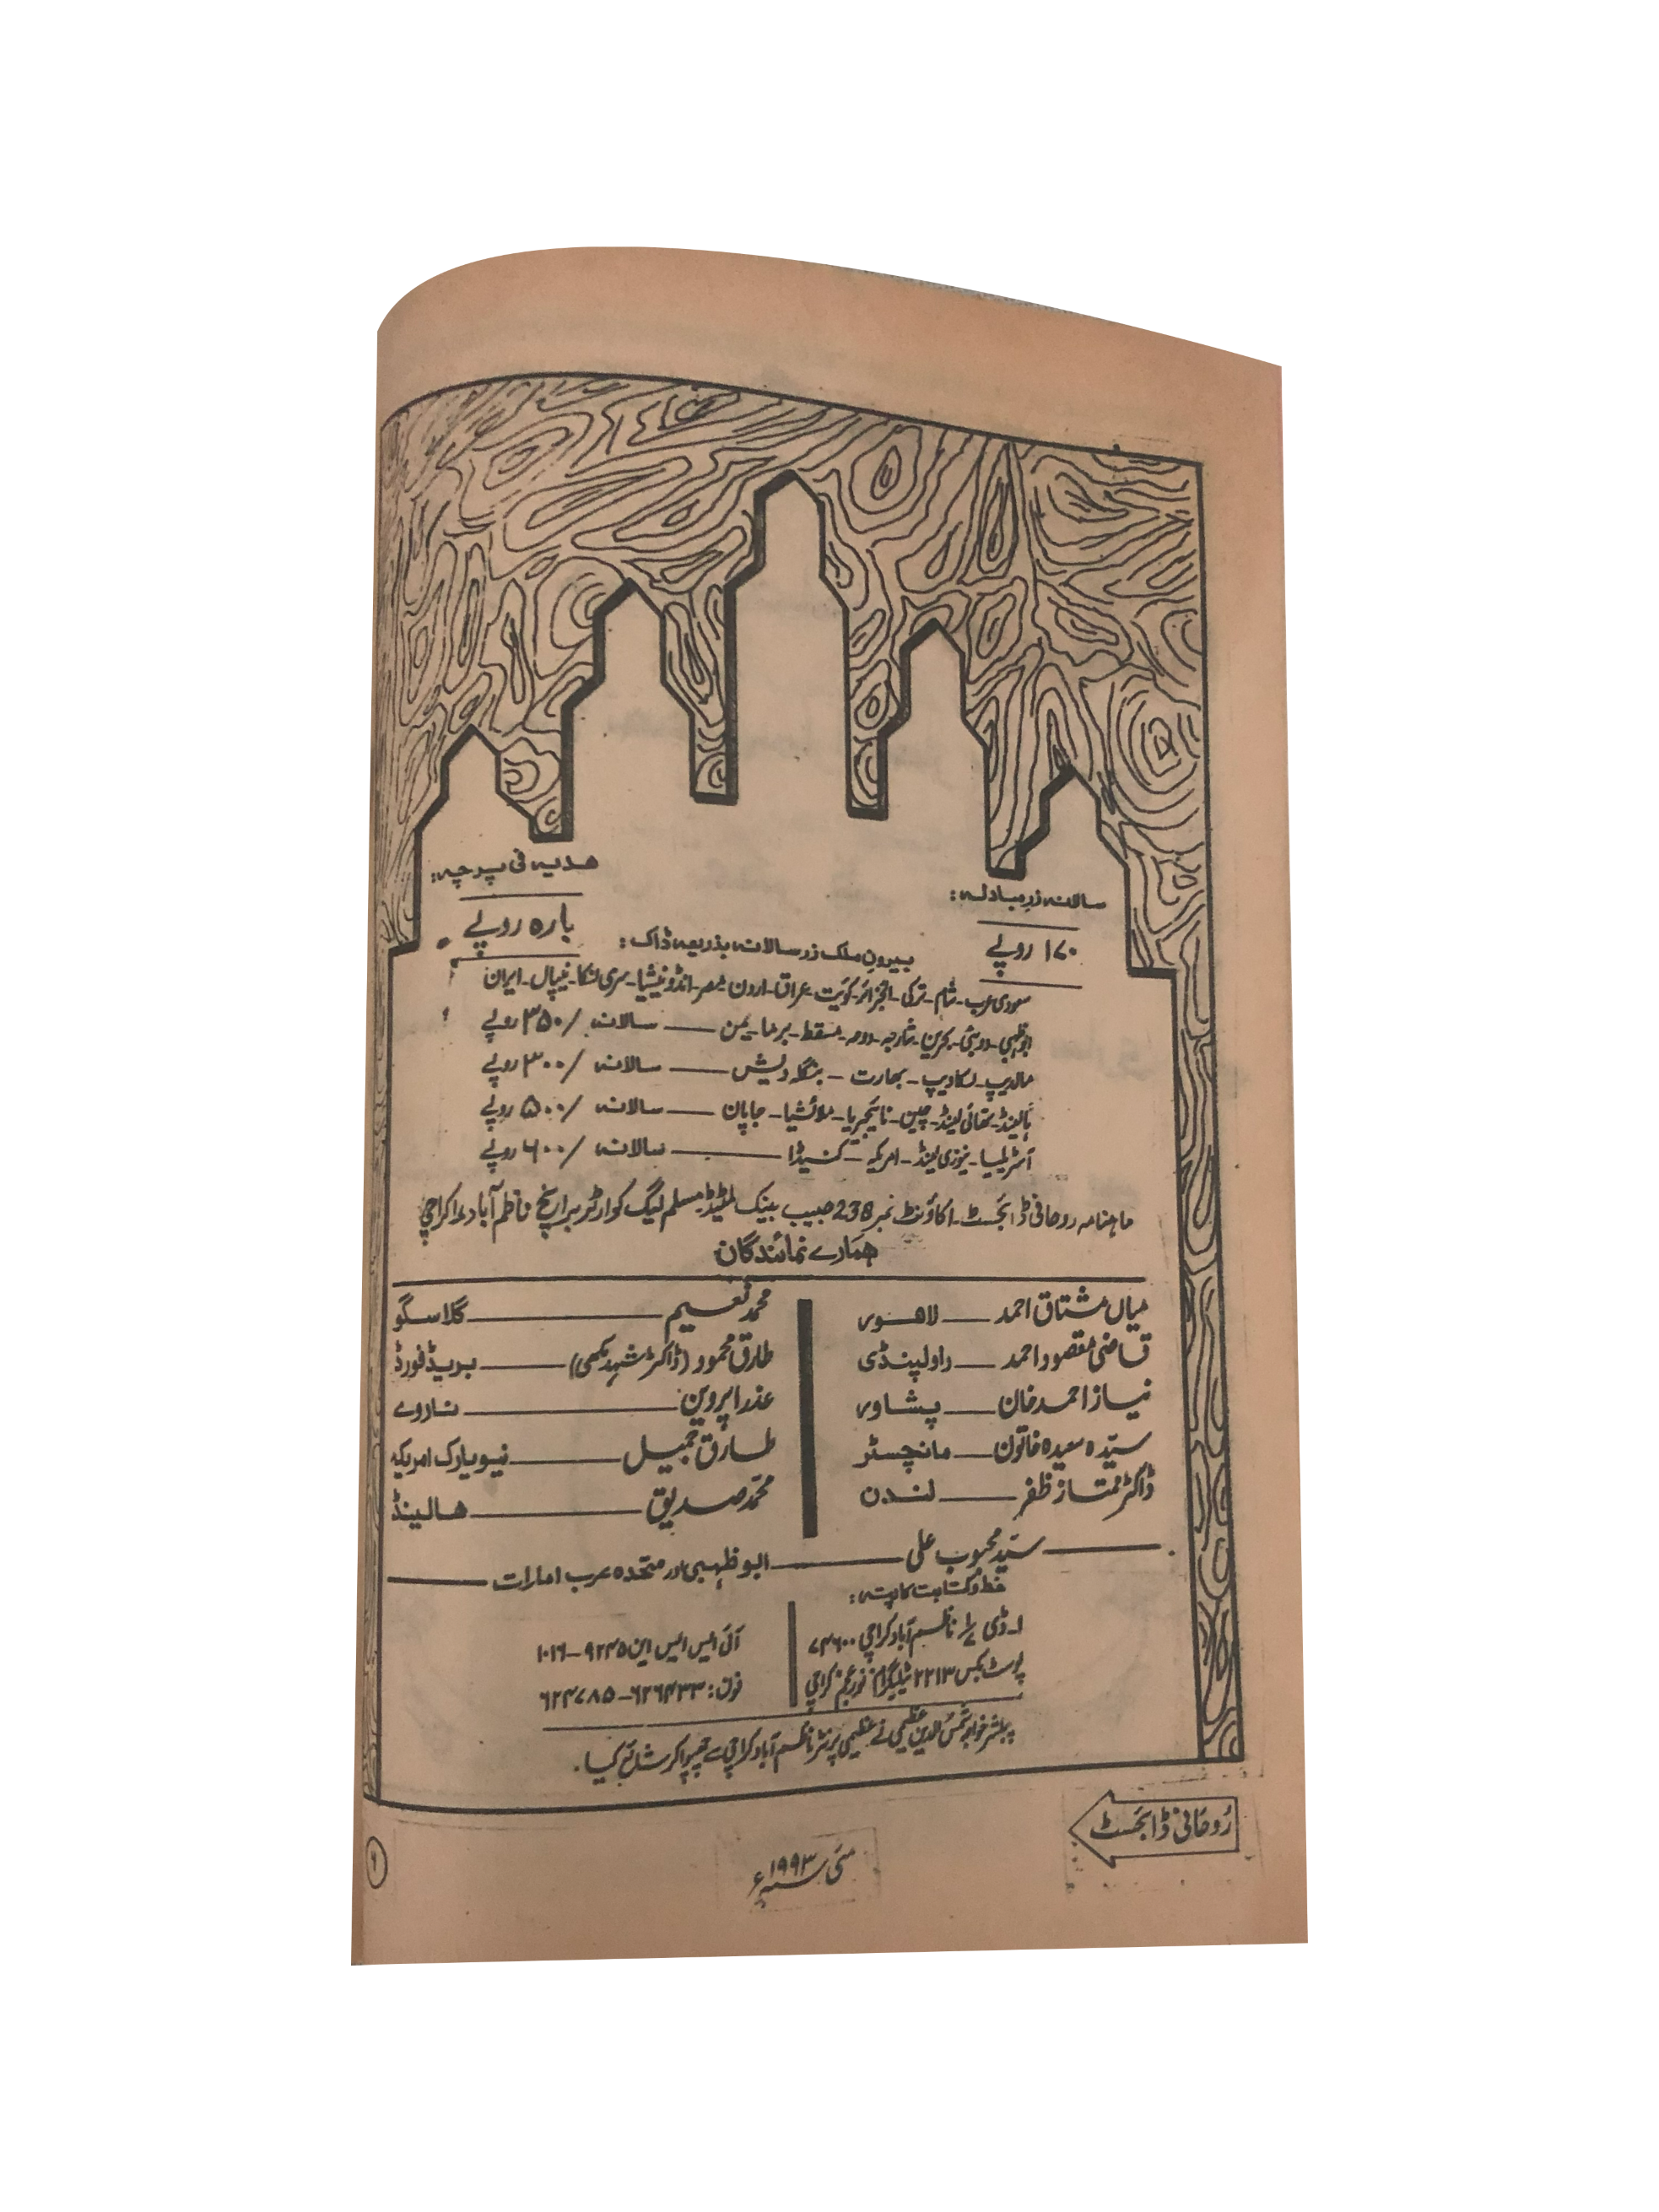 سالانہ زرِمبادلہ:
۱۷۰ روپے
ھدیہ فی پرچہ:
بارہ روپے
بیرونِ ملک زرسالانہ بذریعہ ڈاک:
سعودی عرب۔ شام۔ ترکی۔ الجزائر۔ کویت۔ عراق۔ اردن۔ مصر۔ انڈونیشیا۔ سری لنکا۔ نیپال۔ ایران
ابوظہبی۔ دوبئی۔ بحرین۔ شارجہ۔ دوحہ۔ مسقط۔ برما۔ یمن ــــ سالانہ /۳۵۰ روپے
مالدیپ۔ لکادیپ۔ بھارت ۔ بنگلہ دیش ــــ سالانہ /۳۰۰ روپے
ہالینڈ۔ تھائی لینڈ۔ چین۔ نائیجریا۔ ملائشیا۔ جاپان ــــ سالانہ /۵۰۰ روپے
آسٹریلیا۔ نیوزی لینڈ۔ امریکہ۔ کنیڈا ــــ سالانہ /۶۰۰ روپے
ماہنامہ روحانی ڈائجسٹ۔ اکاؤنٹ نمبر 238 حبیب بینک لمیٹڈ۔ مسلم لیگ کوارٹرز برانچ ناظم آباد کراچی
ھمارے نمائندگان
میاں مشتاق احمد ــــ لاھور
قاضی مقصود احمد ــــ راولپنڈی
نیاز احمد خان ــــ پشاور
سیّدہ سعیدہ خاتون ــــ مانچسٹر
ڈاکٹر ممتاز ظفر ــــ لندن
محمد نعیم ــــ گلاسگو
طارق محمود (ڈاکٹر شہد مکھی) ــــ بریڈفورڈ
عذرا پروین ــــ ناروے
طارق جمیل ــــ نیویارک امریکہ
محمّد صدیق ــــ ھالینڈ
سیّد محبوب علی ــــ ابوظہبی اور متحدہ عرب امارات
خط وکتابت کا پتہ:
۱۔ ڈی ۱/۷ ناظم آباد کراچی ۷۴۶۰۰
پوسٹ بکس ۲۲۱۳ ٹیلیگرام نورِعجم کراچی
آئی ایس ایس این ۹۲۴۵–۱۰۱۶
فون: ۶۲۶۴۳۳–۶۲۴۷۸۵
پبلشر خواجہ شمسُ الدین عظیمی نے عظیمی پرنٹرز ناظم آباد کراچی سے چھپوا کر شائع کیا۔
رُوحانی ڈائجسٹ
مئی ۱۹۹۳ء
۶